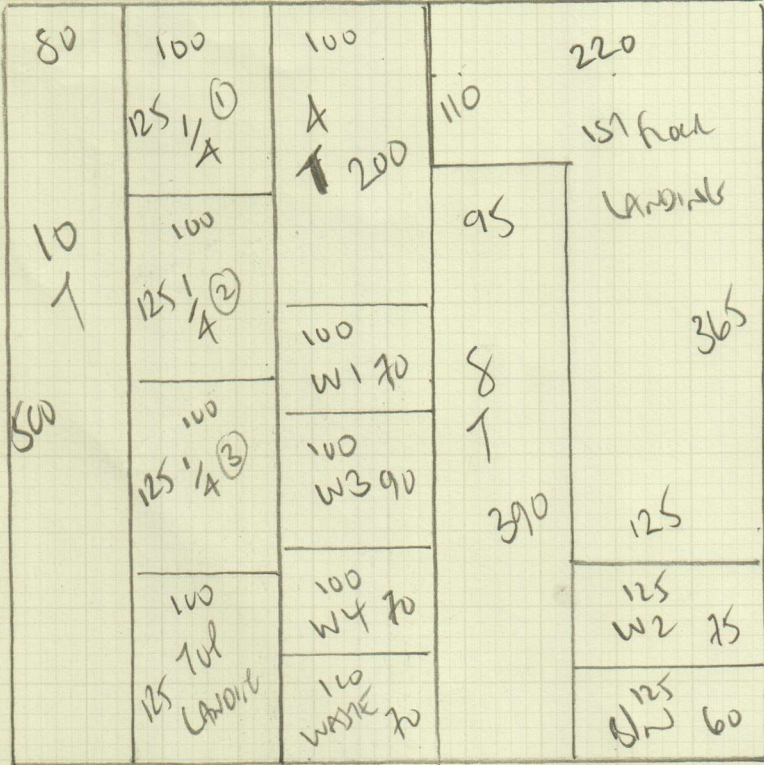 80
10
T
500
100
125 1/4 ①
100
125 1/4 ②
100
125 1/4 ③
100
125 TOP
LANDING
100
4
T 200
100
W1 70
100
W3 90
100
W4 70
100
WASTE 70
220
110
1ST FLOOR
LANDING
365
125
95
8
T
390
125
W2 75
125
60